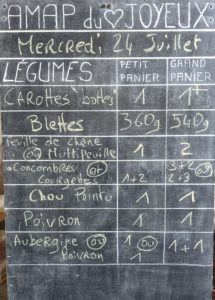 AMAP du ♡ JOYEUX
Mercredi 24 Juillet
LÉGUMES PETIT PANIER GRAND PANIER +
CAROTTES "bottes" 1 1
Blettes 360g 540g
feuille de chêne ou Multifeuille 1 2
Concombres et Courgettes 1+2 3+2 ou 2+3
Chou Pointu 1 1
Poivron 1 1
Aubergine ou Poivron 1 ou 1 1+1